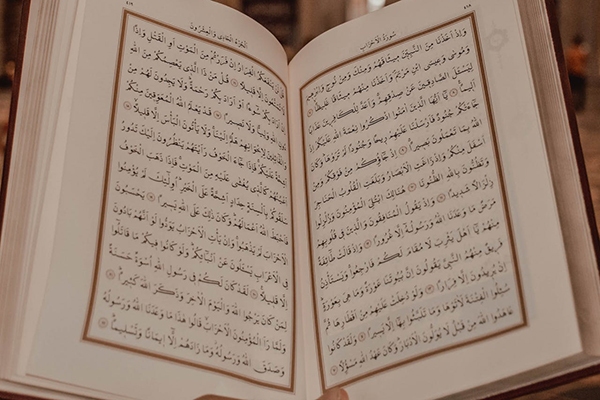 سُورَةُ الْأَحْزَابِ
وَإِذْ أَخَذْنَا مِنَ النَّبِيِّينَ مِيثَاقَهُمْ وَمِنْكَ وَمِنْ نُوحٍ وَإِبْرٰهِيمَ
وَمُوسَى وَعِيسَى ابْنِ مَرْيَمَ وَأَخَذْنَا مِنْهُمْ مِيثَاقًا غَلِيظًا ٧
لِيَسْئَلَ الصَّادِقِينَ عَنْ صِدْقِهِمْ وَأَعَدَّ لِلْكَافِرِينَ عَذَابًا
أَلِيمًا ٨ يَا أَيُّهَا الَّذِينَ آمَنُوا اذْكُرُوا نِعْمَةَ اللَّهِ عَلَيْكُمْ إِذْ
جَاءَتْكُمْ جُنُودٌ فَأَرْسَلْنَا عَلَيْهِمْ رِيحًا وَجُنُودًا لَمْ تَرَوْهَا وَكَانَ
اللَّهُ بِمَا تَعْمَلُونَ بَصِيرًا ٩ إِذْ جَاؤُكُمْ مِنْ فَوْقِكُمْ وَمِنْ
أَسْفَلَ مِنْكُمْ وَإِذْ زَاغَتِ الْأَبْصَارُ وَبَلَغَتِ الْقُلُوبُ الْحَنَاجِرَ
وَتَظُنُّونَ بِاللَّهِ الظُّنُونَا ١٠ هُنَالِكَ ابْتُلِيَ الْمُؤْمِنُونَ وَزُلْزِلُوا
زِلْزَالًا شَدِيدًا ١١ وَإِذْ يَقُولُ الْمُنَافِقُونَ وَالَّذِينَ فِي قُلُوبِهِمْ
مَرَضٌ مَا وَعَدَنَا اللَّهُ وَرَسُولُهُ إِلَّا غُرُورًا ١٢ وَإِذْ قَالَتْ طَائِفَةٌ
مِنْهُمْ يَا أَهْلَ يَثْرِبَ لَا مُقَامَ لَكُمْ فَارْجِعُوا وَيَسْتَأْذِنُ
فَرِيقٌ مِنْهُمُ النَّبِيَّ يَقُولُونَ إِنَّ بُيُوتَنَا عَوْرَةٌ وَمَا هِيَ بِعَوْرَةٍ
إِنْ يُرِيدُونَ إِلَّا فِرَارًا ١٣ وَلَوْ دُخِلَتْ عَلَيْهِمْ مِنْ أَقْطَارِهَا ثُمَّ
سُئِلُوا الْفِتْنَةَ لَآتَوْهَا وَمَا تَلَبَّثُوا بِهَا إِلَّا يَسِيرًا ١٤ وَلَقَدْ كَانُوا
عَاهَدُوا اللَّهَ مِنْ قَبْلُ لَا يُوَلُّونَ الْأَدْبَارَ وَكَانَ عَهْدُ اللَّهِ مَسْؤُلًا ١٥
الْجُزْءُ الْحَادِي وَالْعِشْرُونَ
قُلْ لَنْ يَنْفَعَكُمُ الْفِرَارُ إِنْ فَرَرْتُمْ مِنَ الْمَوْتِ أَوِ الْقَتْلِ وَإِذًا
لَا تُمَتَّعُونَ إِلَّا قَلِيلًا ١٦ قُلْ مَنْ ذَا الَّذِي يَعْصِمُكُمْ مِنَ اللَّهِ
إِنْ أَرَادَ بِكُمْ سُوءًا أَوْ أَرَادَ بِكُمْ رَحْمَةً وَلَا يَجِدُونَ لَهُمْ مِنْ
دُونِ اللَّهِ وَلِيًّا وَلَا نَصِيرًا ١٧ قَدْ يَعْلَمُ اللَّهُ الْمُعَوِّقِينَ مِنْكُمْ
وَالْقَائِلِينَ لِإِخْوَانِهِمْ هَلُمَّ إِلَيْنَا وَلَا يَأْتُونَ الْبَأْسَ إِلَّا قَلِيلًا ١٨
أَشِحَّةً عَلَيْكُمْ فَإِذَا جَاءَ الْخَوْفُ رَأَيْتَهُمْ يَنْظُرُونَ إِلَيْكَ تَدُورُ
أَعْيُنُهُمْ كَالَّذِي يُغْشَى عَلَيْهِ مِنَ الْمَوْتِ فَإِذَا ذَهَبَ الْخَوْفُ
سَلَقُوكُمْ بِأَلْسِنَةٍ حِدَادٍ أَشِحَّةً عَلَى الْخَيْرِ أُولٰئِكَ لَمْ يُؤْمِنُوا
فَأَحْبَطَ اللَّهُ أَعْمَالَهُمْ وَكَانَ ذٰلِكَ عَلَى اللَّهِ يَسِيرًا ١٩ يَحْسَبُونَ
الْأَحْزَابَ لَمْ يَذْهَبُوا وَإِنْ يَأْتِ الْأَحْزَابُ يَوَدُّوا لَوْ أَنَّهُمْ بَادُونَ
فِي الْأَعْرَابِ يَسْئَلُونَ عَنْ أَنْبَائِكُمْ وَلَوْ كَانُوا فِيكُمْ مَا قَاتَلُوا
إِلَّا قَلِيلًا ٢٠ لَقَدْ كَانَ لَكُمْ فِي رَسُولِ اللَّهِ أُسْوَةٌ حَسَنَةٌ
لِمَنْ كَانَ يَرْجُوا اللَّهَ وَالْيَوْمَ الْآخِرَ وَذَكَرَ اللَّهَ كَثِيرًا ٢١
وَلَمَّا رَأَ الْمُؤْمِنُونَ الْأَحْزَابَ قَالُوا هٰذَا مَا وَعَدَنَا اللَّهُ وَرَسُولُهُ
وَصَدَقَ اللَّهُ وَرَسُولُهُ وَمَا زَادَهُمْ إِلَّا إِيمَانًا وَتَسْلِيمًا ٢٢